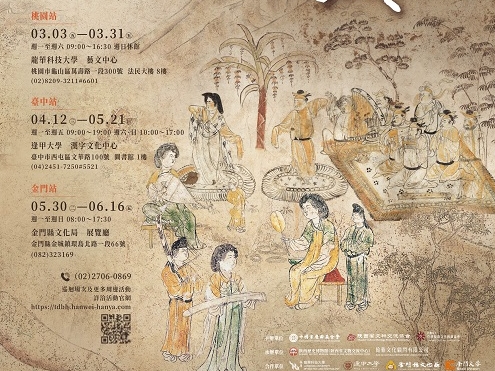 桃園站
03.03 —03.31
週一至週六 09:00~16:30 週日休館
龍華科技大學 藝文中心
桃園市龜山區萬壽路一段300號 法民大樓 8樓
(02)8209-3211#6601
臺中站
04.12 —05.21
週一至週五 09:00~19:00 週六-日 10:00~17:00
逢甲大學 漢字文化中心
臺中市西屯區文華路100號 圖書館 1樓
(04)2451-7250#5521
金門站
05.30 —06.16
週一至週日 08:00~17:30
金門縣文化局 展覽廳
金門縣金城鎮環島北路一段66號
(082)323169
(02)2706-0869
巡迴場次及更多周邊活動
詳洽活動官網
主辦單位
協辦單位
合作單位
逢甲大學